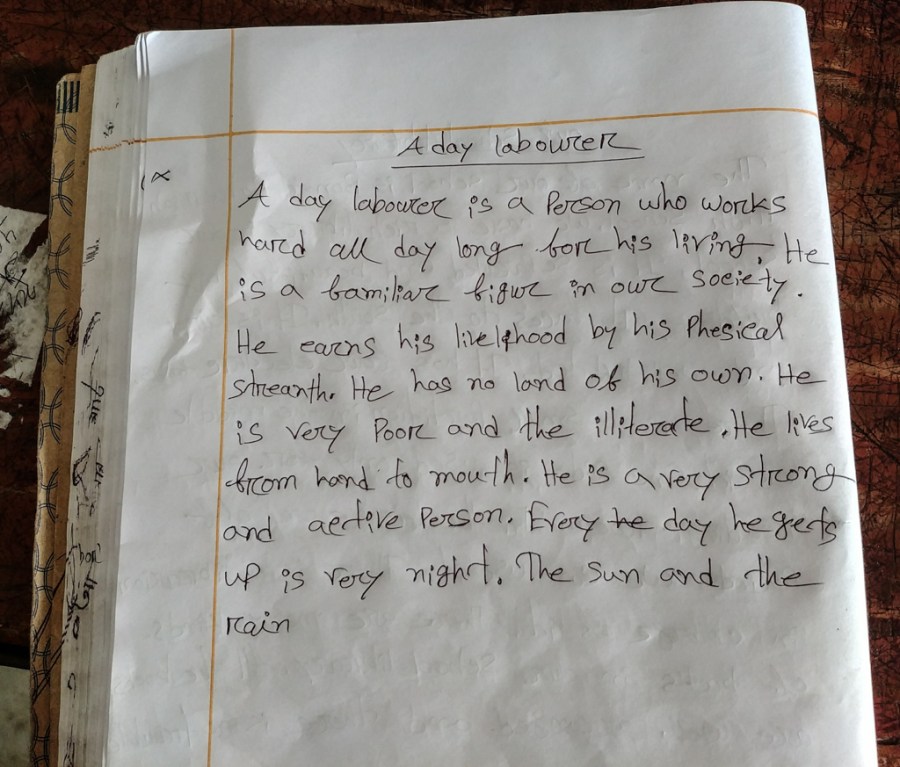 A day labourer
A day labourer is a Person who works
hard all day long for his living, He
is a familiar figur in our society.
He earns his livelihood by his Phesical
streanth. He has no land of his own. He
is very Poor and the illiterate. He lives
from hand to mouth. He is a very strong
and aective Person. Every he day he gets
up is very night. The sun and the
rain